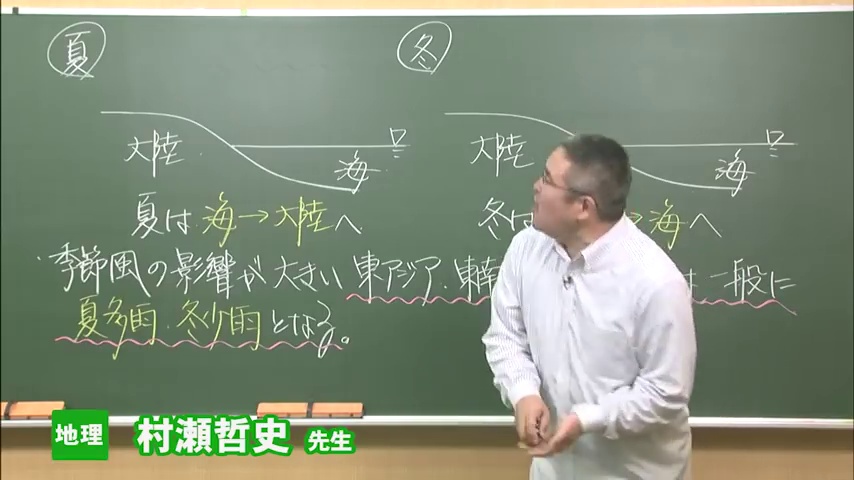 夏
冬
大陸 海
大陸 海
夏は 海→大陸へ
冬は →海へ
季節風の影響が大きい東アジア・東南 は一般に
夏多雨・冬少雨となる。
地理 村瀬哲史 先生